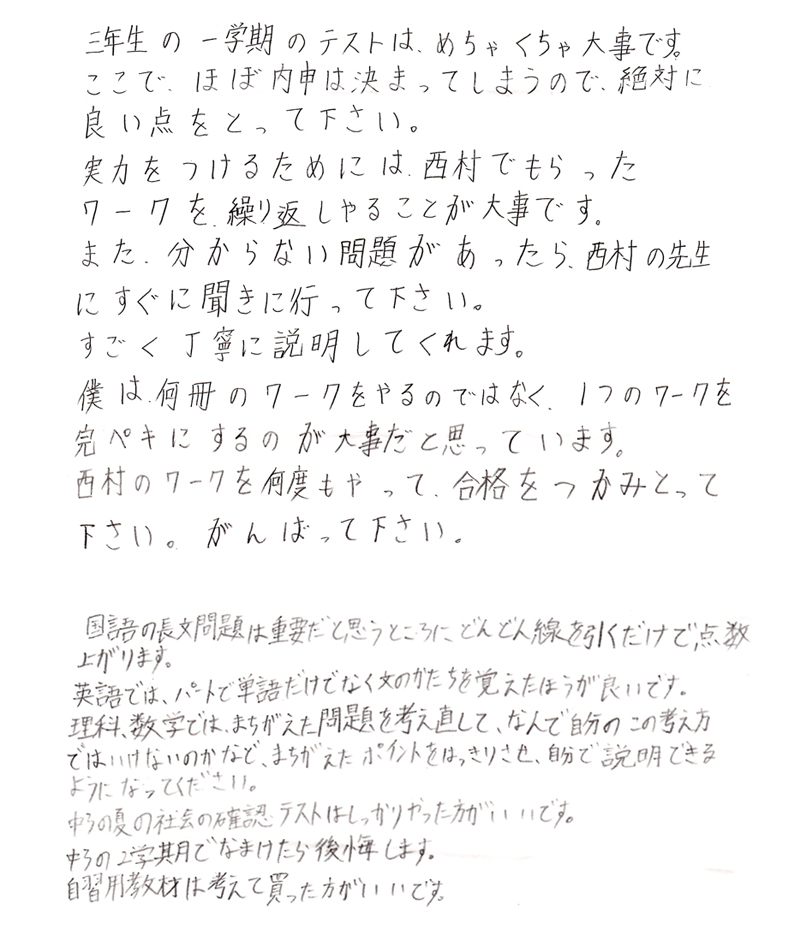 三年生の一学期のテストは、めちゃくちゃ大事です。
ここで、ほぼ内申は決まってしまうので、絶対に
良い点をとって下さい。
実力をつけるためには、西村でもらった
ワークを、繰り返しやることが大事です。
また、分からない問題があったら、西村の先生
にすぐに聞きに行って下さい。
すごく丁寧に説明してくれます。
僕は、何冊のワークをやるのではなく、1つのワークを
完ペキにするのが大事だと思っています。
西村のワークを何度もやって、合格をつかみとって
下さい。がんばって下さい。
国語の長文問題は重要だと思うところに、どんどん線を引くだけで点数
上がります。
英語では、パートで単語だけでなく文のかたちを覚えたほうが良いです。
理科、数学では、まちがえた問題を考え直して、なんで自分のこの考え方
ではいけないのかなど、まちがえたポイントをはっきりさせ、自分で説明できる
ようになってください。
中3の夏の社会の確認テストはしっかりやった方がいいです。
中3の2学期でなまけたら後悔します。
自習用教材は考えて買った方がいいです。